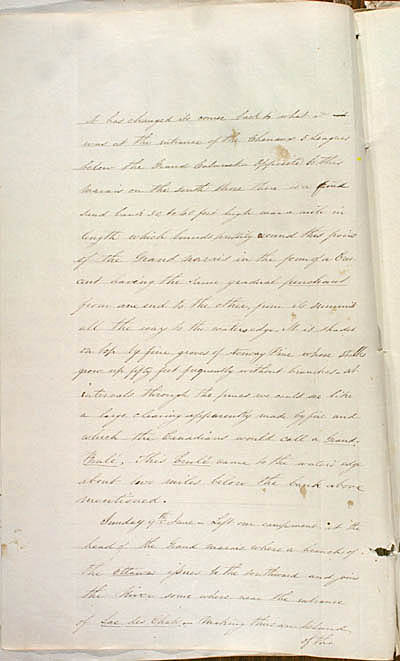 it has changed its course back to what it
was at the entrance of the Chenaux 5 leagues
below the Grand Calumet. Opposite to this
marais on the south shore there is a fine
sand bank 50 to 60 feet high near a mile in
length which bounds entirely round this point
of the Grand marais in the form of a Cres
cent having the same gradual penchant
from one end to the other, from its summit
all the way to the waters edge. It is shaded
on top by fine groves of Norway Pine whose
grow up fifty feet frequently without branches. At
intervals through the pines we could see like
a large clearing apparently made by fire and
which the Canadians would call a Grand
Brulé. This Brulé came to the water's edge
about two miles below the bank above
mentioned.
Sunday 9th June - Left our encampment at the
head of the Grand marais where a branch of
the Ottawa issues to the southward and joins
the River some where near the entrance
of Lac des Chats - making thus an Island
of this